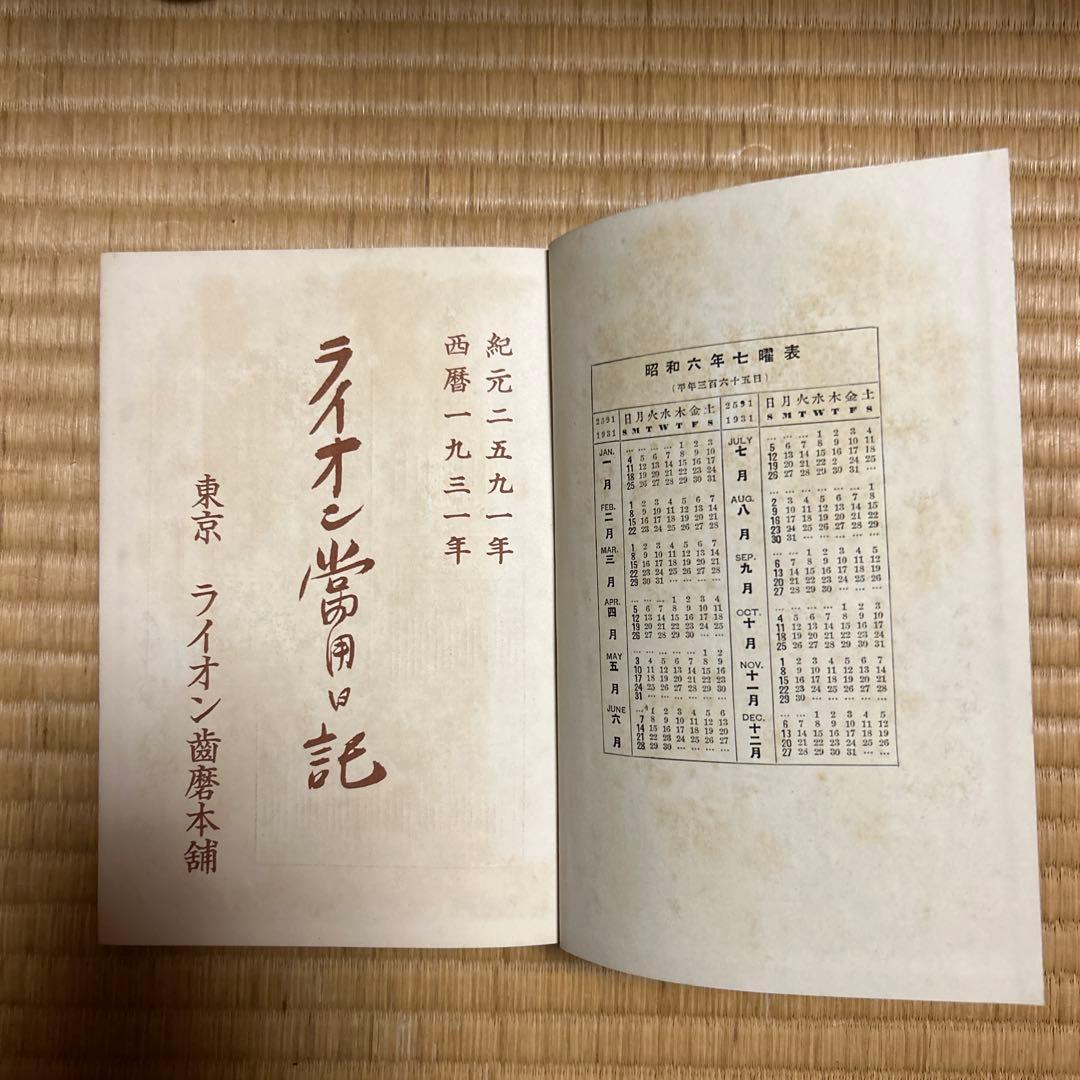 紀元二五九一年
西暦一九三一年
ライオン當用日記
東京 ライオン齒磨本舖
昭和六年七曜表
(平年三百六十五日)
2591 日 月 火 水 木 金 土
1931 S M T W T F S
JAN. 一月
... ... ... ... 1 2 3
4 5 6 7 8 9 10
11 12 13 14 15 16 17
18 19 20 21 22 23 24
25 26 27 28 29 30 31
FEB. 二月
1 2 3 4 5 6 7
8 9 10 11 12 13 14
15 16 17 18 19 20 21
22 23 24 25 26 27 28
MAR. 三月
1 2 3 4 5 6 7
8 9 10 11 12 13 14
15 16 17 18 19 20 21
22 23 24 25 26 27 28
29 30 31 ... ... ... ...
APR. 四月
... ... ... 1 2 3 4
5 6 7 8 9 10 11
12 13 14 15 16 17 18
19 20 21 22 23 24 25
26 27 28 29 30 ... ...
MAY 五月
... ... ... ... ... 1 2
3 4 5 6 7 8 9
10 11 12 13 14 15 16
17 18 19 20 21 22 23
24 25 26 27 28 29 30
31 ... ... ... ... ... ...
JUNE 六月
... 1 2 3 4 5 6
7 8 9 10 11 12 13
14 15 16 17 18 19 20
21 22 23 24 25 26 27
28 29 30 ... ... ... ...
2591 日 月 火 水 木 金 土
1931 S M T W T F S
JULY 七月
... ... ... 1 2 3 4
5 6 7 8 9 10 11
12 13 14 15 16 17 18
19 20 21 22 2 24 25
26 27 28 29 30 31 ...
AUG. 八月
... ... ... ... ... ... 1
2 3 4 5 6 7 8
9 10 11 12 13 14 15
16 17 18 19 20 21 22
23 24 25 26 27 28 29
30 31 ... ... ... ... ...
SEP. 九月
... ... 1 2 3 4 5
6 7 8 9 10 11 12
13 14 15 16 17 18 19
20 21 22 23 24 25 26
27 28 29 30 ... ... ...
OCT. 十月
... ... ... ... 1 2 3
4 5 6 7 8 9 10
11 12 13 14 15 16 17
18 19 20 21 22 23 24
25 26 27 28 29 30 31
NOV. 十一月
1 2 3 4 5 6 7
8 9 10 11 12 13 14
15 16 17 18 19 20 21
22 23 24 25 26 27 28
29 30 ... ... ... ... ...
DEC. 十二月
... ... 1 2 3 4 5
6 7 8 9 10 11 12
13 14 15 16 17 18 19
20 21 22 23 24 25 26
27 28 29 30 31 ... ...